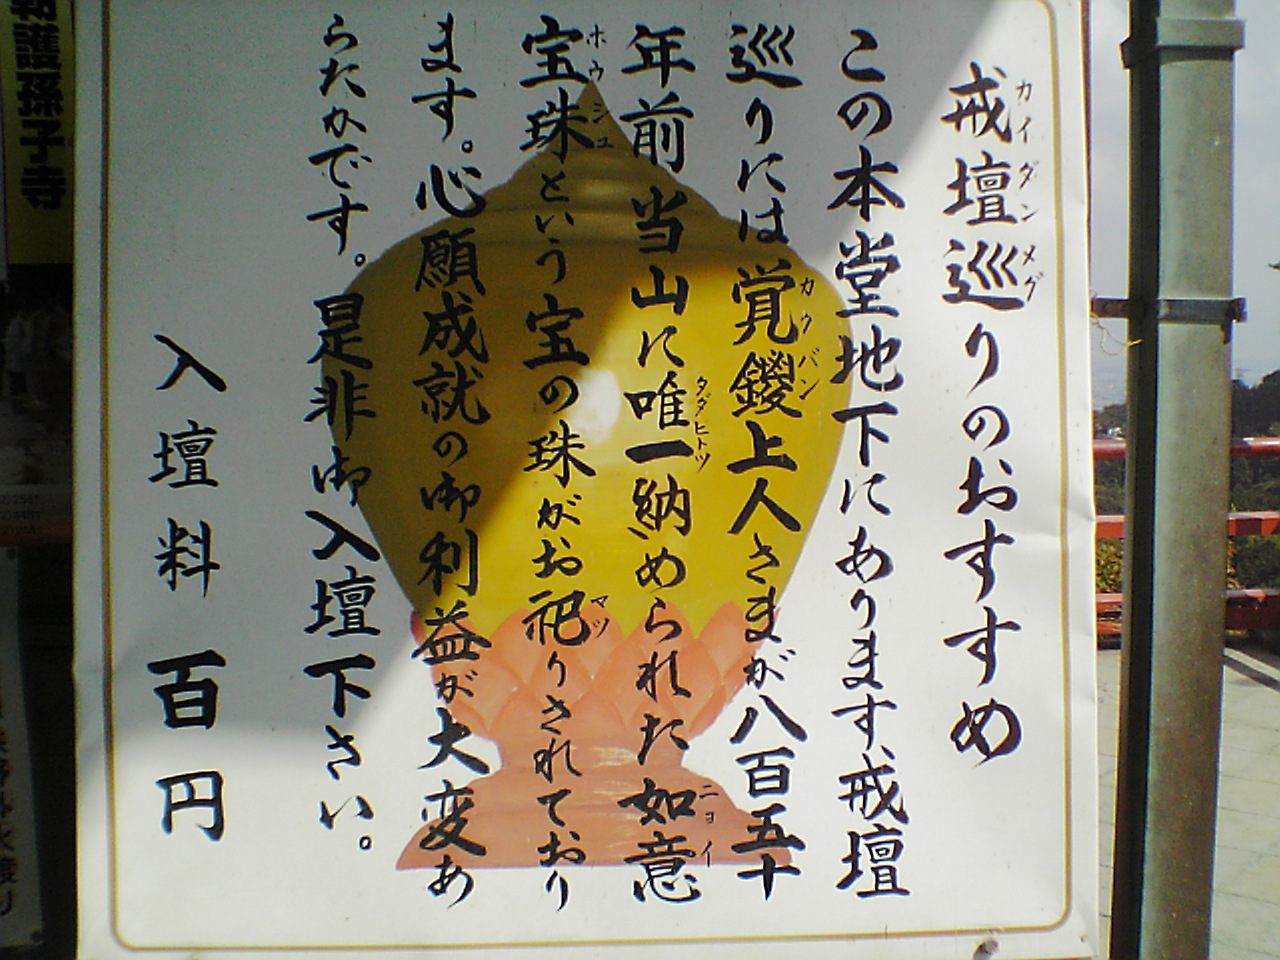 戒壇巡りのおすすめ
カイダンメグ
この本堂地下にあります、戒壇
巡りには覚鑁上人さまが八百五十
カウバン
年前当山に唯一納められた如意
タダヒトツ
ニョイ
宝珠という宝の珠がお祀りされており
ホウシュ
マツ
ます。心願成就の御利益が大変あ
らたかです。是非御入壇下さい。
入壇料 百円
護孫子寺